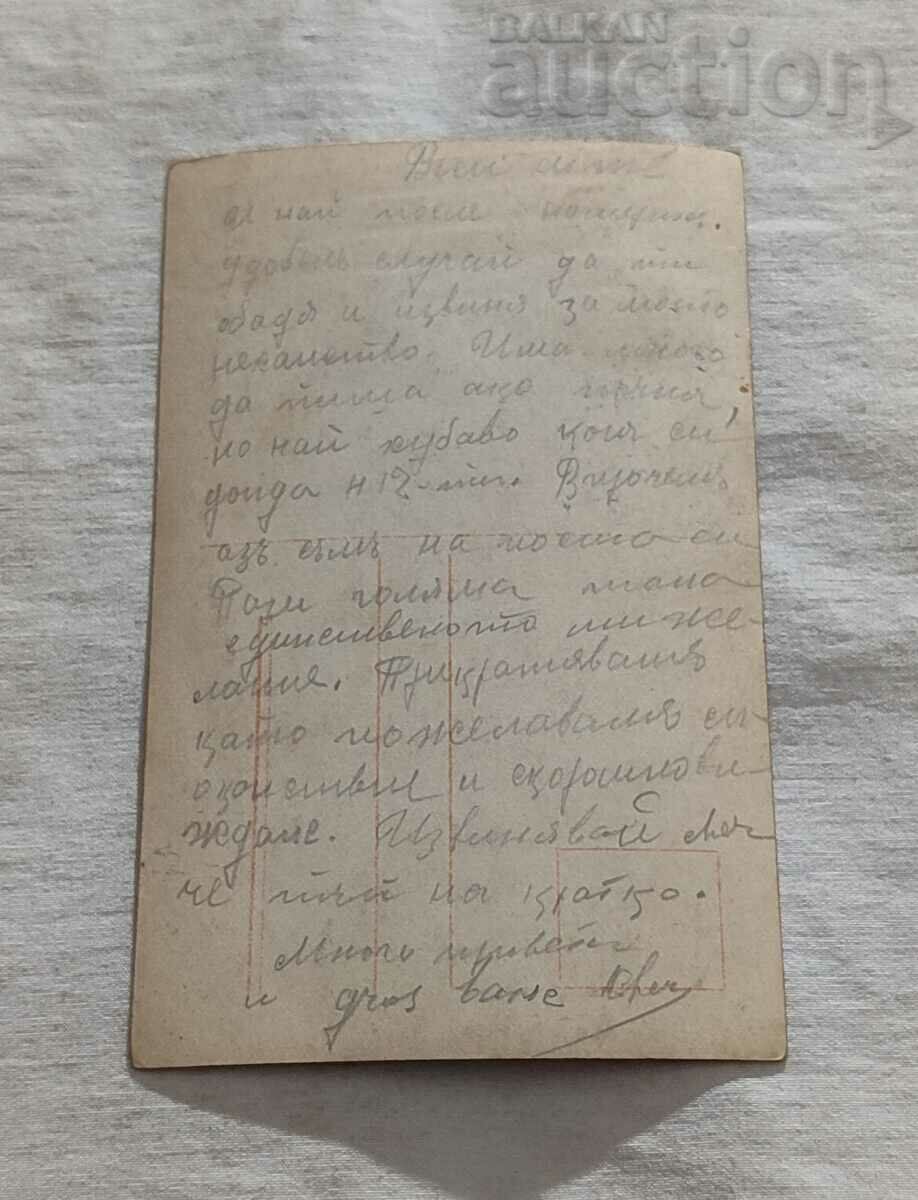 BALKAN
auction
ей най после
удобенъ случай да ти
обадя и извиня за моето
нехайство. Има много
да пиша ако почна,
но най хубаво кога си
дойда н 12-ти.
азъ съмъ на поста си
Тази голяма
единственото ми же-
лание. Прикратявамъ
като пожелавамъ сп-
окойствие и скорошнови-
ждане. Извинявай ме
че тъй на кратко.
Много привети
и